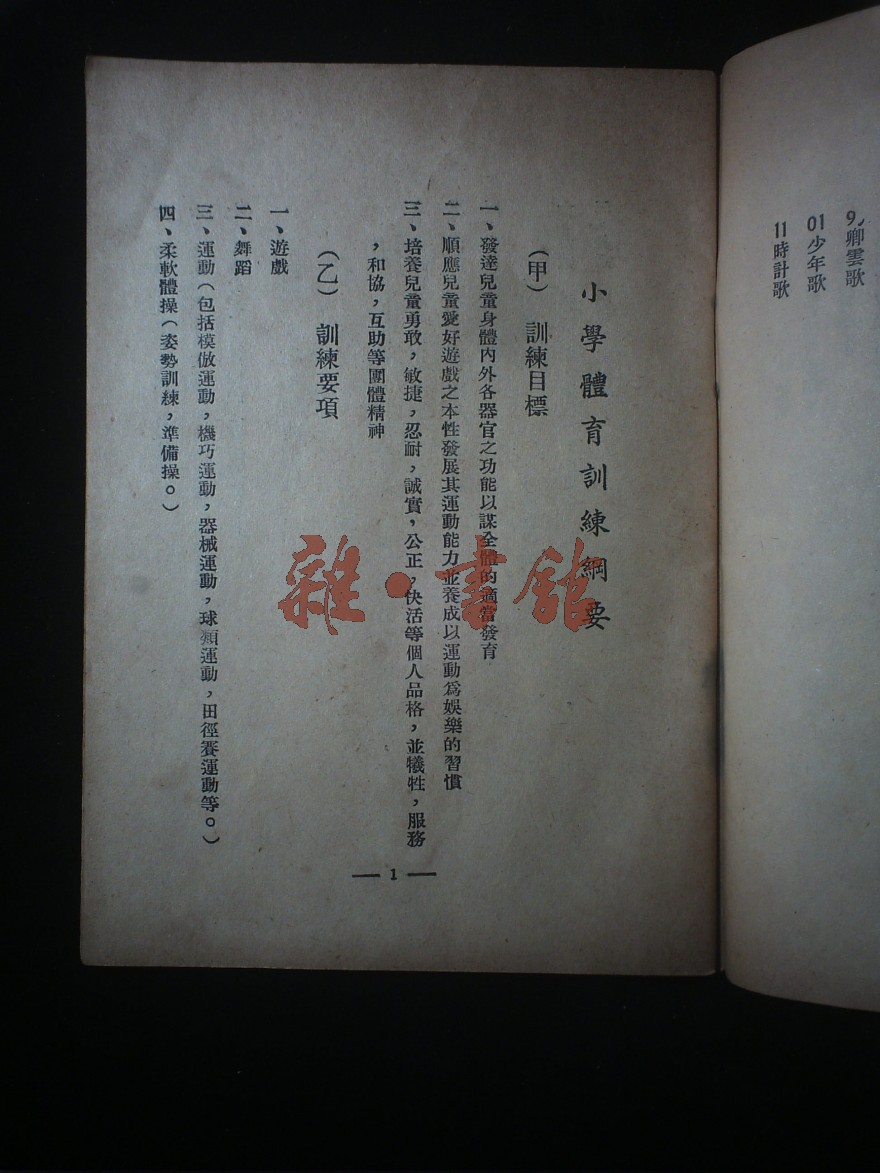 9、卿雲歌
01少年歌
11時計歌
小學體育訓練綱要
（甲） 訓練目標
一、發達兒童身體內外各器官之功能以謀全體的適當發育
二、順應兒童愛好遊戲之本性發展其運動能力並養成以運動爲娛樂的習慣
三、培養兒童勇敢，敏捷，忍耐，誠實，公正，快活等個人品格，並犧牲，服務
，和協，互助等團體精神
（乙） 訓練要項
一、遊戲
二、舞蹈
三、運動（包括模倣運動，機巧運動，器械運動，球類運動，田徑賽運動等。）
四、柔軟體操（姿勢訓練，準備操。）
— 1 —
雜·書館